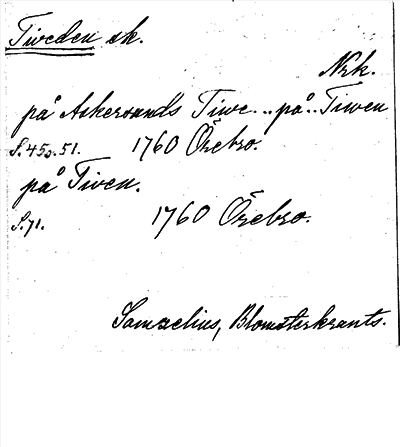 Tiveden sk.
Nrk.
på Askersunds Tiwe... på.. Tiwen
S. 45o.51. 1760 Örebro.
på Tiven.
S.71. 1760 Örebro.
Samzelius, Blomsterkrants.